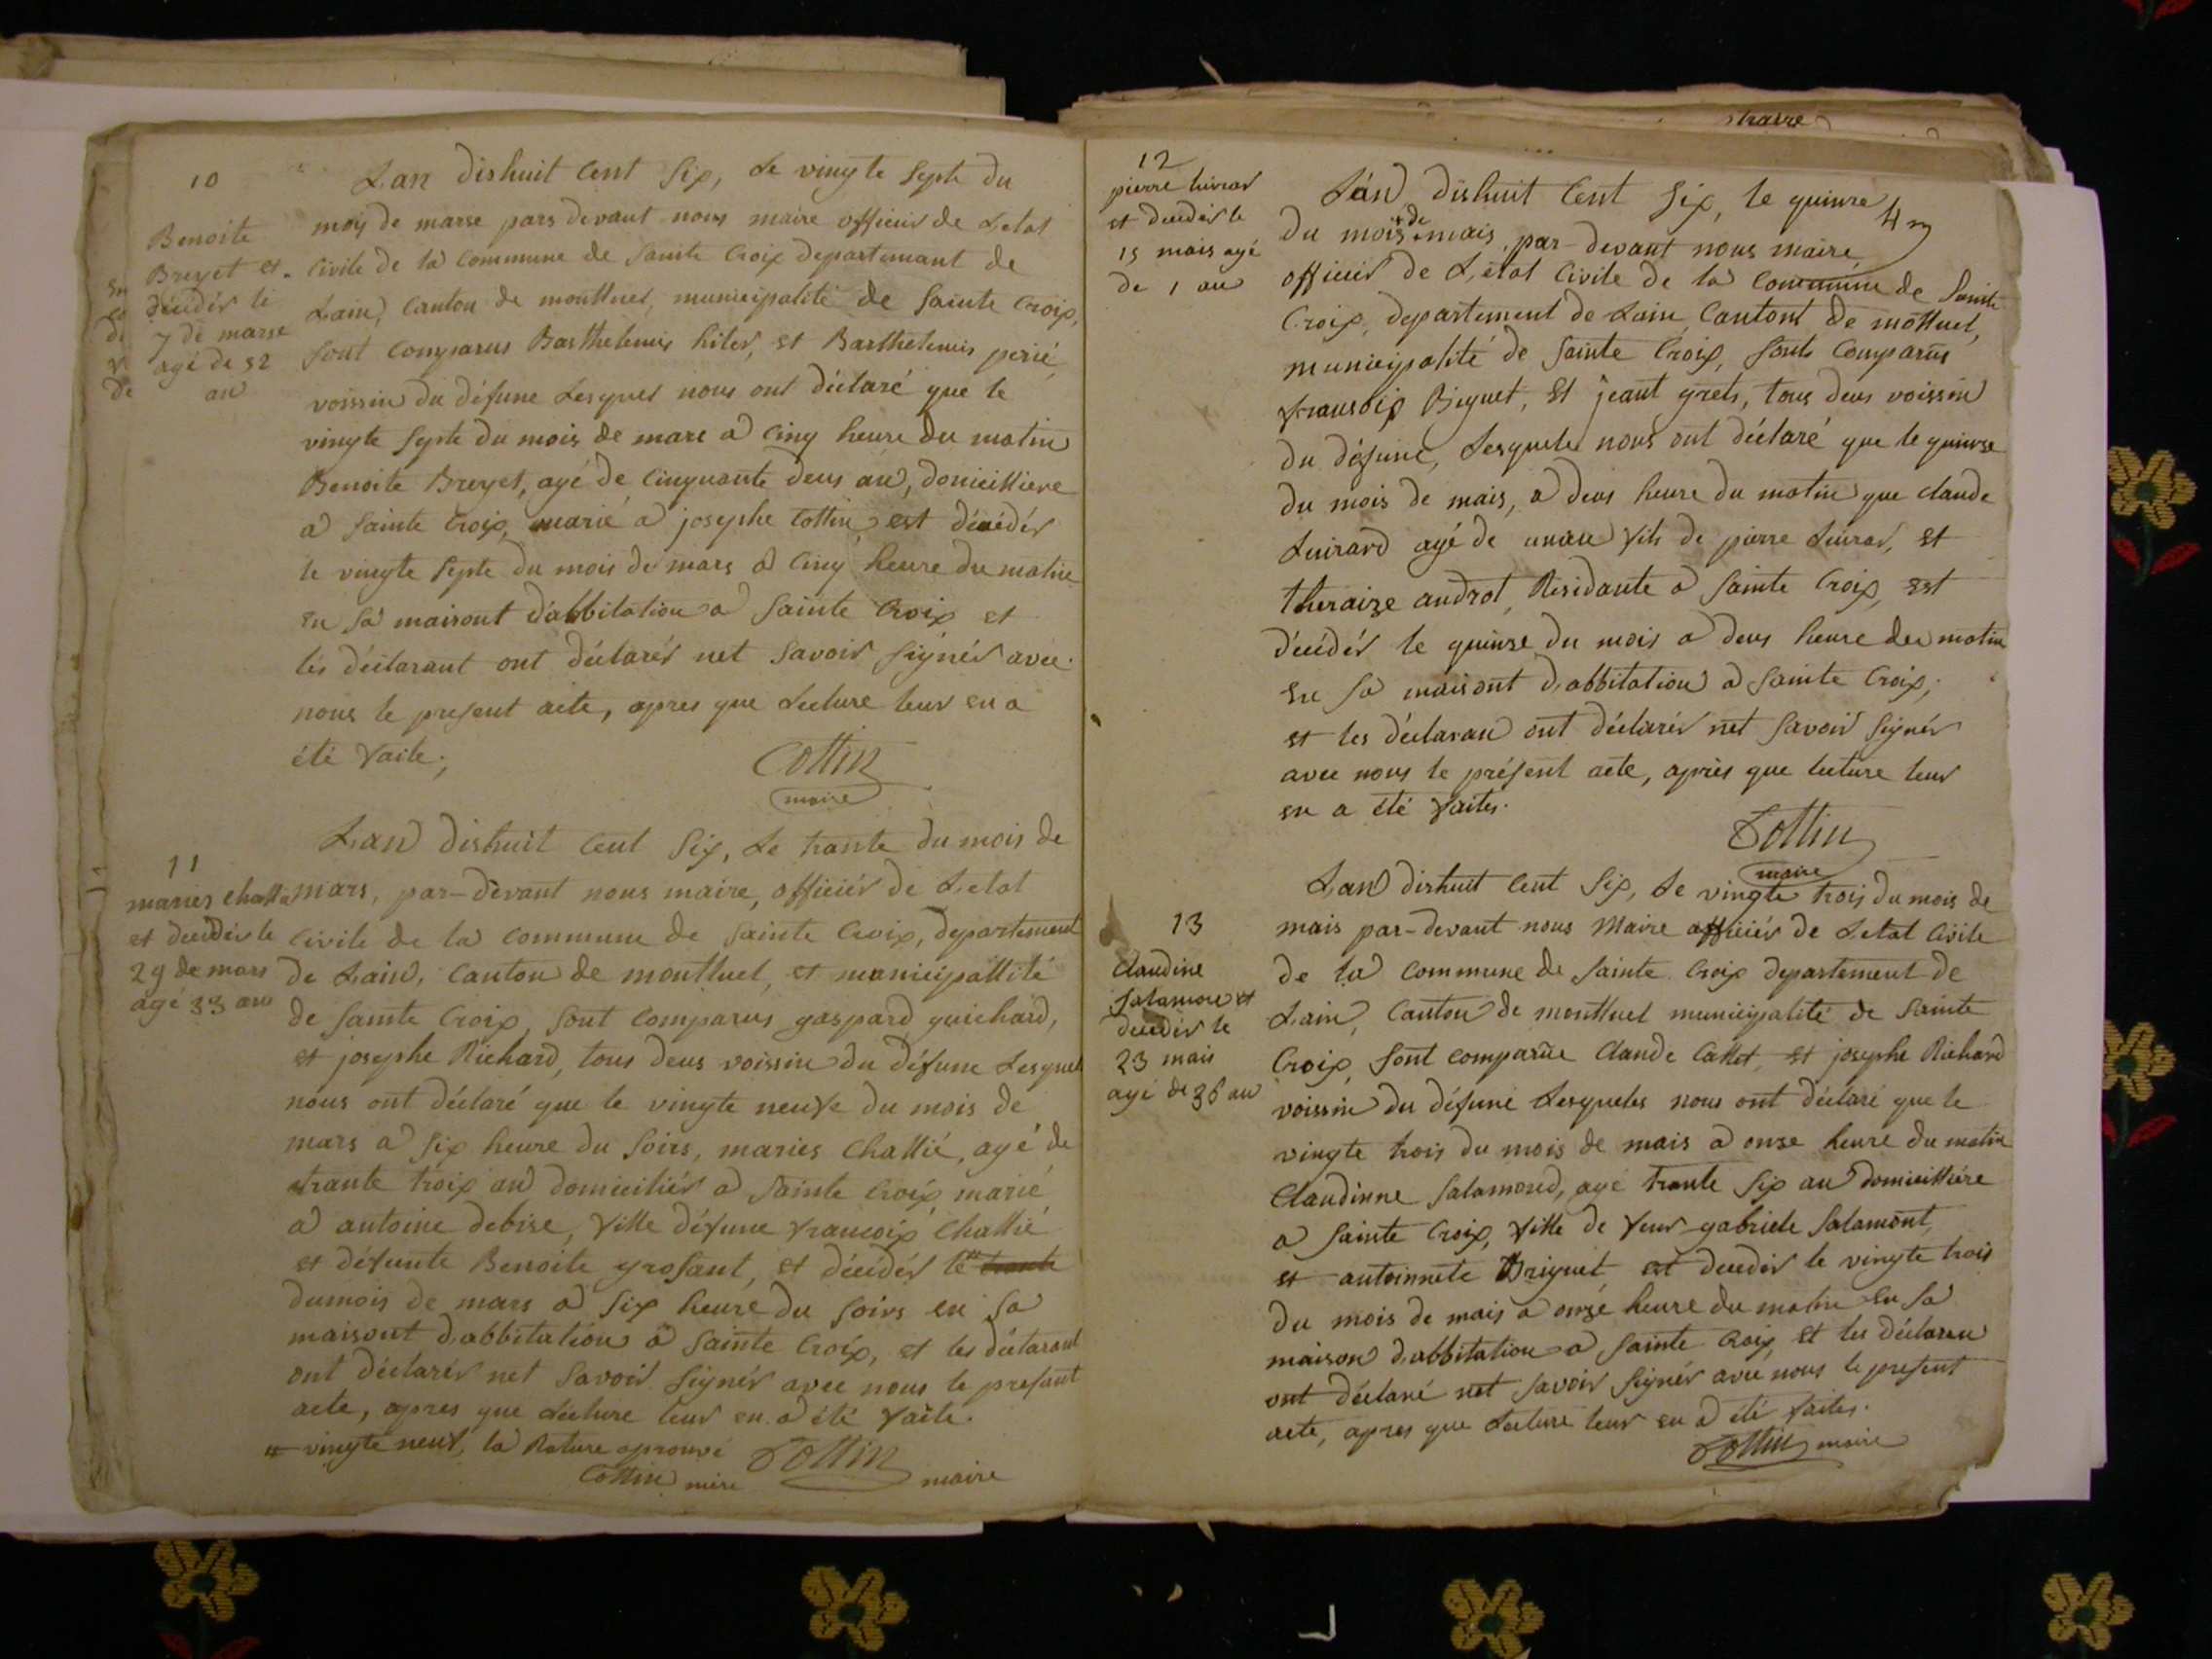 10
Benoite
Breyet et
décédér le
7 de marse
agé de 52
an
Lan dishuit Cent Six, Le vingte Septe du
moy de marse pars devant nous maire officier de Letat
Civile de la Commune de Sainte Croix departemant de
Lain, Canton de montluel, municipalité de Sainte Croix,
sont Comparus Barthelemis hiler, et Barthelemis perié,
voissin du défune Lesquel nous ont déclaré que le
vingte Septe du mois de mare a Cinq heure du matin
Benoite Breyet, agé de Cinquante deus an, domicilliere
a Sainte Croix, marié a josephe Cottin, est décédér
le vingte Septe du mois de mars a Cinq heure du matin
en Sa maisont d'abbitation a Sainte Croix et
lés déclarant ont déclarér net Savoir Signér avec
nous le present acte, apres que Lecture leur en a
été Faite.
Cottin
maire
11
maries chattié
et décédér le
29 de mars
agé 33 ans
Lan dishuit Cent Six, Le trante du mois de
mars, par-devant nous maire, officiér de Letat
Civile de la Commune de Sainte Croix, departement
de Lain, Canton de montluel, et municipallité
de Sainte Croix, Sont Comparus gaspard guichard,
et josephe Richard, tous deus voissin du défune Lesquel
nous ont déclaré que le vingte neufe du mois de
mars a Six heure du Soirs, maries Chattié, agé de
trante troix an domiciliér a Sainte Croix, marié
a antoine debise, Fille défune Francoix Chattié
et défunte Benoite grosant, et décédér le # trante
du mois de mars a Six heure du Soirs en Sa
maisont d'abbitation a Sainte Croix, et les déclarant
ont déclarér net Savoir Signér avec nous le presant
acte, apres que Lecture leur en a été Faite.
# vingte neuf, la Rature aprouvé
Cottin mere
Cottin maire
12
pierre luirar
et décédér le
15 mais agé
de 1 an
4
Lán dishuit Cent Six, le quinre
du mois de mais, par-devant nous maire
officiér de L'état Civile de la Commune de Sainte
Croix, departement de Lain, Cantont de mottuel,
municipalité de Sainte Croix, Sonts Comparus
fransoix Biguet, Et jeant grets, tous deus voissin
du défune, Lesquele nous ont déclaré que le quinrse
du mois de mais, a deus heure du matin que claude
Luirard agé de unan Fils de pierre Luirar, et
theraize audrot, Residante a Sainte Croix, est
décédér le quinze du mois a deus heure du matin
en Sa maisont d'abbitation a Sainte Croix,
et les déclaran ont déclarér net Savoir Signér
avec nous le présent acte, après que lecture leur
en a été Faites.
Cottin
maire
13
Claudine
Salamon et
décédér le
23 mais
agé de 36 an
Lan dishuit Cent Six, Le vingte trois du mois de
mais par-devant nous Maire officiér de Letat Civile
de la Commune de Sainte Croix departement de
Lain, Canton de montluel municipalité de Sainte
Croix, Sont comparûe Claude Callet, et josephe Richard
voissin du défune Lesqueles nous ont déclaré que le
vingte trois du mois de mais a onse heure du matin
Claudinne Salamond, agé trante Six an domicilliére
a Sainte Croix, Fille de Feur gabriele Salamont,
et antoinnete Briguet est décédér le vingte trois
du mois de mais a onzé heure du matin en Sa
maison d'abbitation a Sainte Croix, et les déclaran
ont déclaré net Savoir Signér avec nous le present
acte, apres que Lecture leur en a été Faites.
Cottin maire